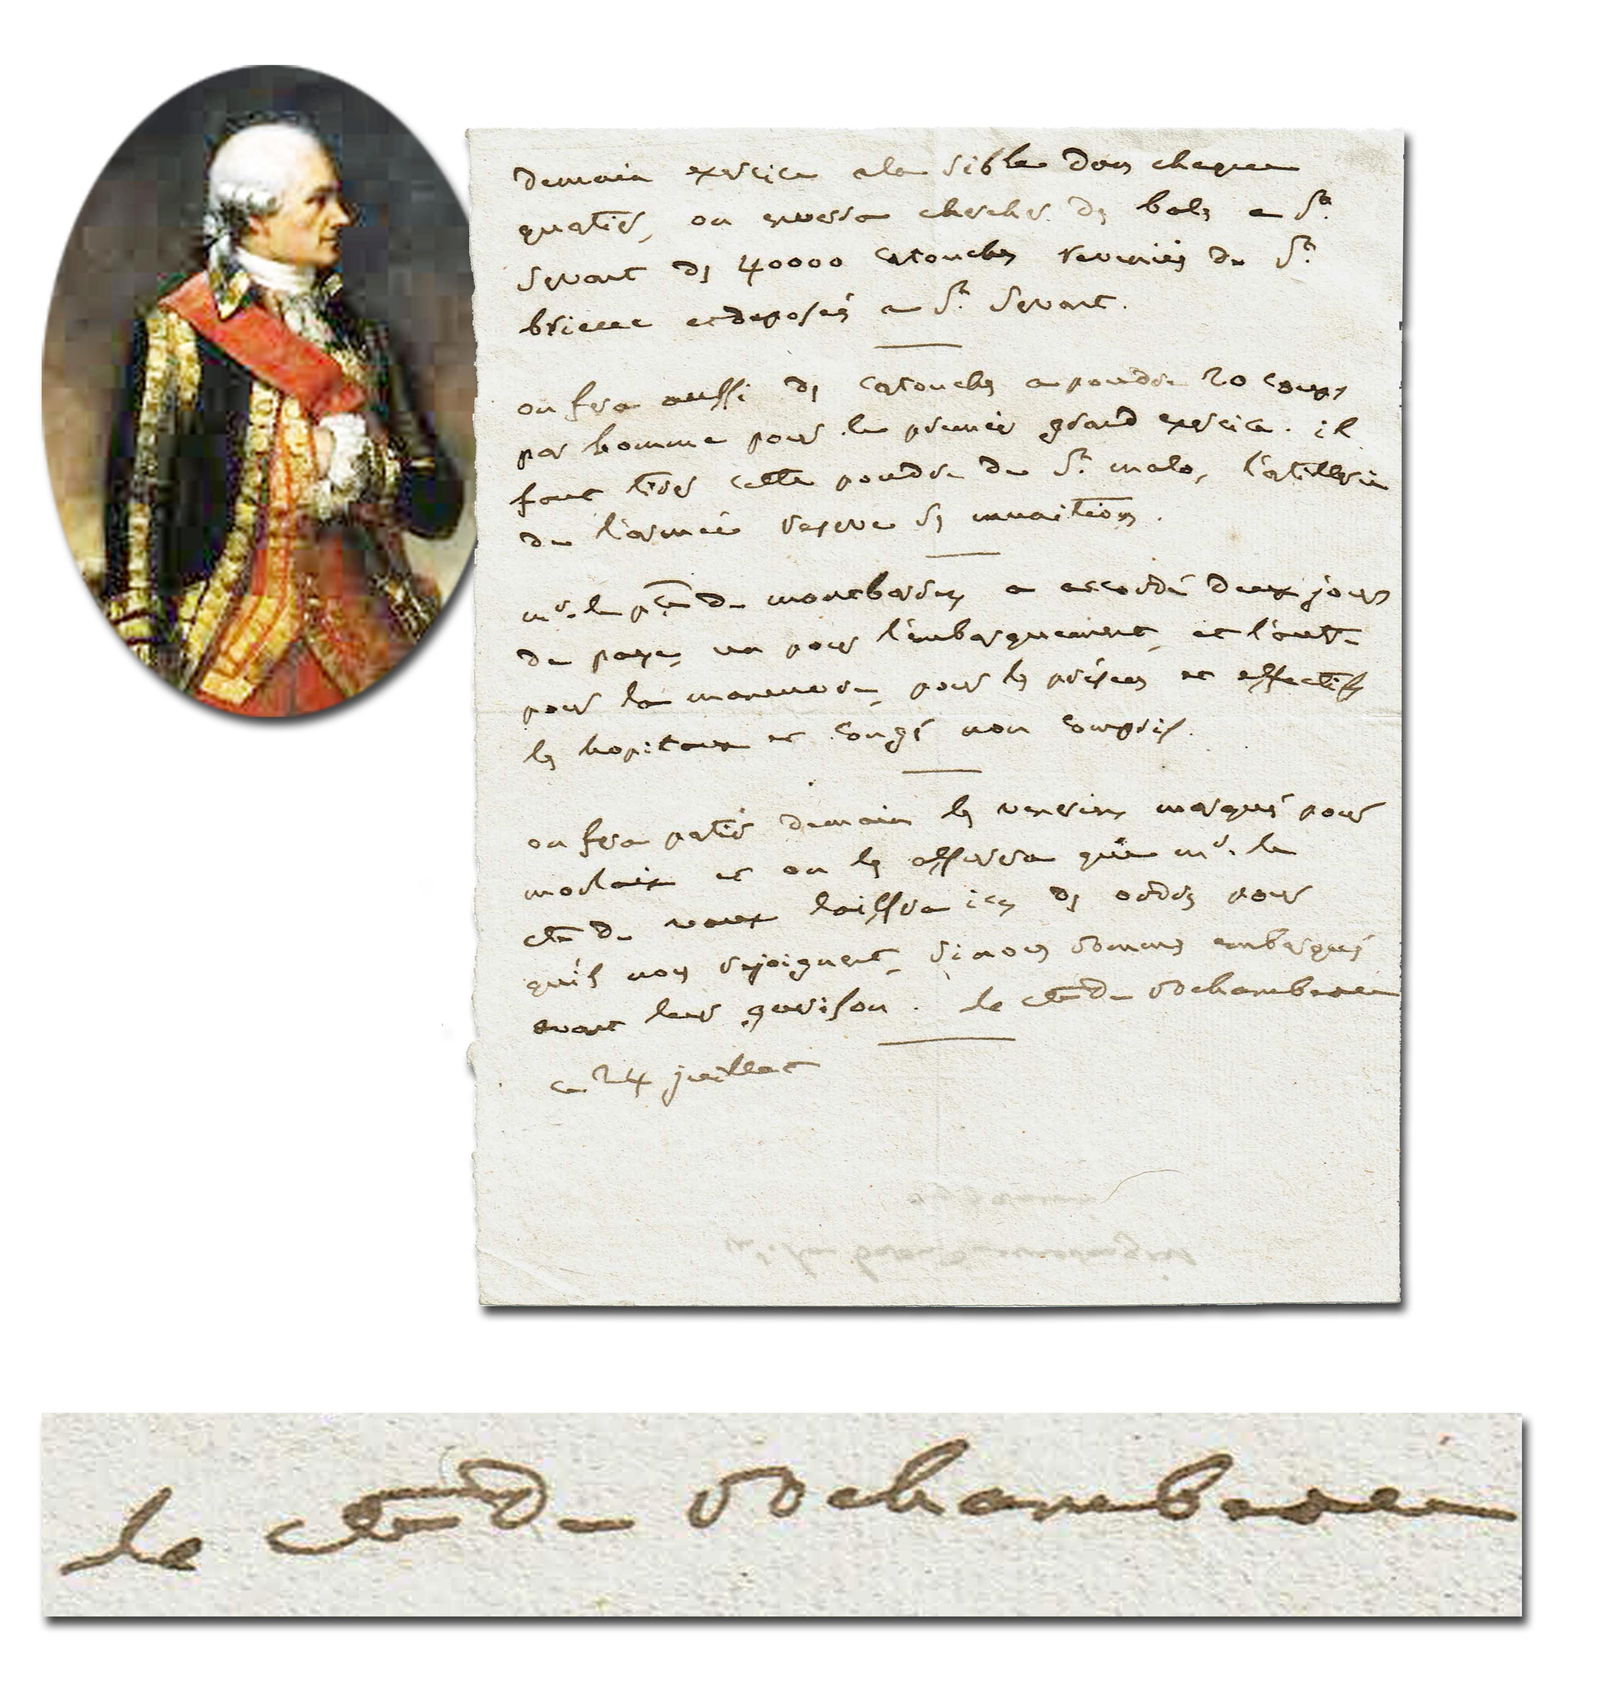 demain exercice a la sible dans chaque
quartier, on enverra chercher des bales a St.
Servant des 40000 catouches revenües de St.
brieuc et deposés a St. Servant.
on fera aussi des catouches a poudre 20 coups
par homme pour le premier grand exercice. il
faut tirer cette poudre de St. malo, l'artillerie
de l'armée reserve ses munitions.
mr. le pce de montbarey a accordé deux jours
de paye, un pour l'embarquement, et l'autre
pour la manœuvre, pour les présens et effectifs
les hopitaux et congé non compris.
on fera partir demain les veneriens marqués pour
morlaix et on les assurera que mr. le
cte de vaux laissera icy des ordres pour
qu'ils nous rejoignent, si nous sommes embarqués
avant leur guerison. le cte de rochambeau
ce 24 juillet
le cte de rochambeau